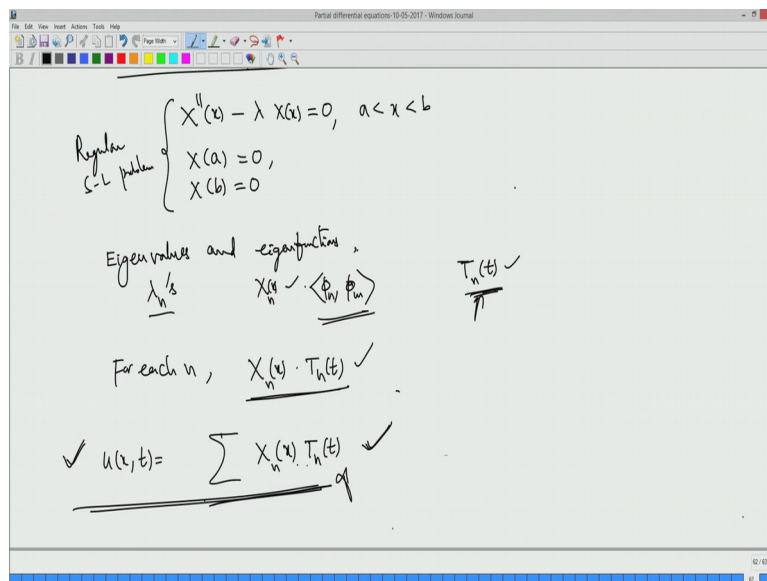 Partial differential equations-10-05-2017 - Windows Journal
File Edit View Insert Actions Tools Help
Page Width
B I
X''(x) - λ X(x) = 0, a < x < b
Regular S-L problem
X(a) = 0,
X(b) = 0
Eigenvalues and eigenfunctions.
λₙ's Xₙ(x) ✓ . ⟨φₙ, φₘ⟩ Tₙ(t) ✓
For each n, Xₙ(x) · Tₙ(t) ✓
✓ u(x,t) = ∑ Xₙ(x) Tₙ(t) ✓
62 / 63
62